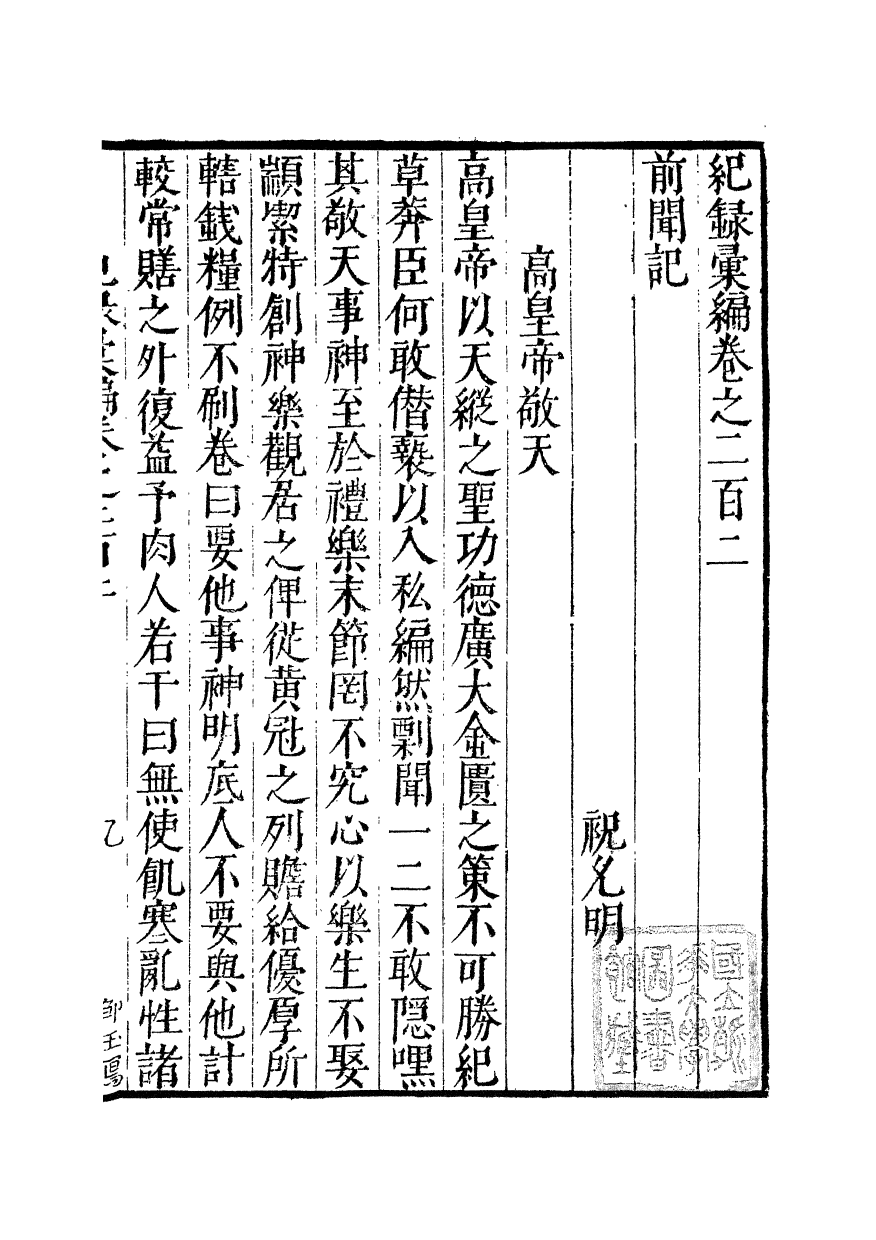 紀録彙編卷之二百二
前聞記
祝允明
高皇帝敬天
高皇帝以天縱之聖功德廣大金匱之策不可勝紀
草莽臣何敢僭䙝以入私編然剽聞一二不敢隱嘿
其敬天事神至於禮樂末節罔不究心以樂生不娶
顓潔特創神樂觀居之俾從黃冠之列贍給優厚所
轄錢糧例不刷卷曰要他事神明底人不要與他計
較常膳之外復益予肉人若干曰無使飢寒亂性諸
鄒玉